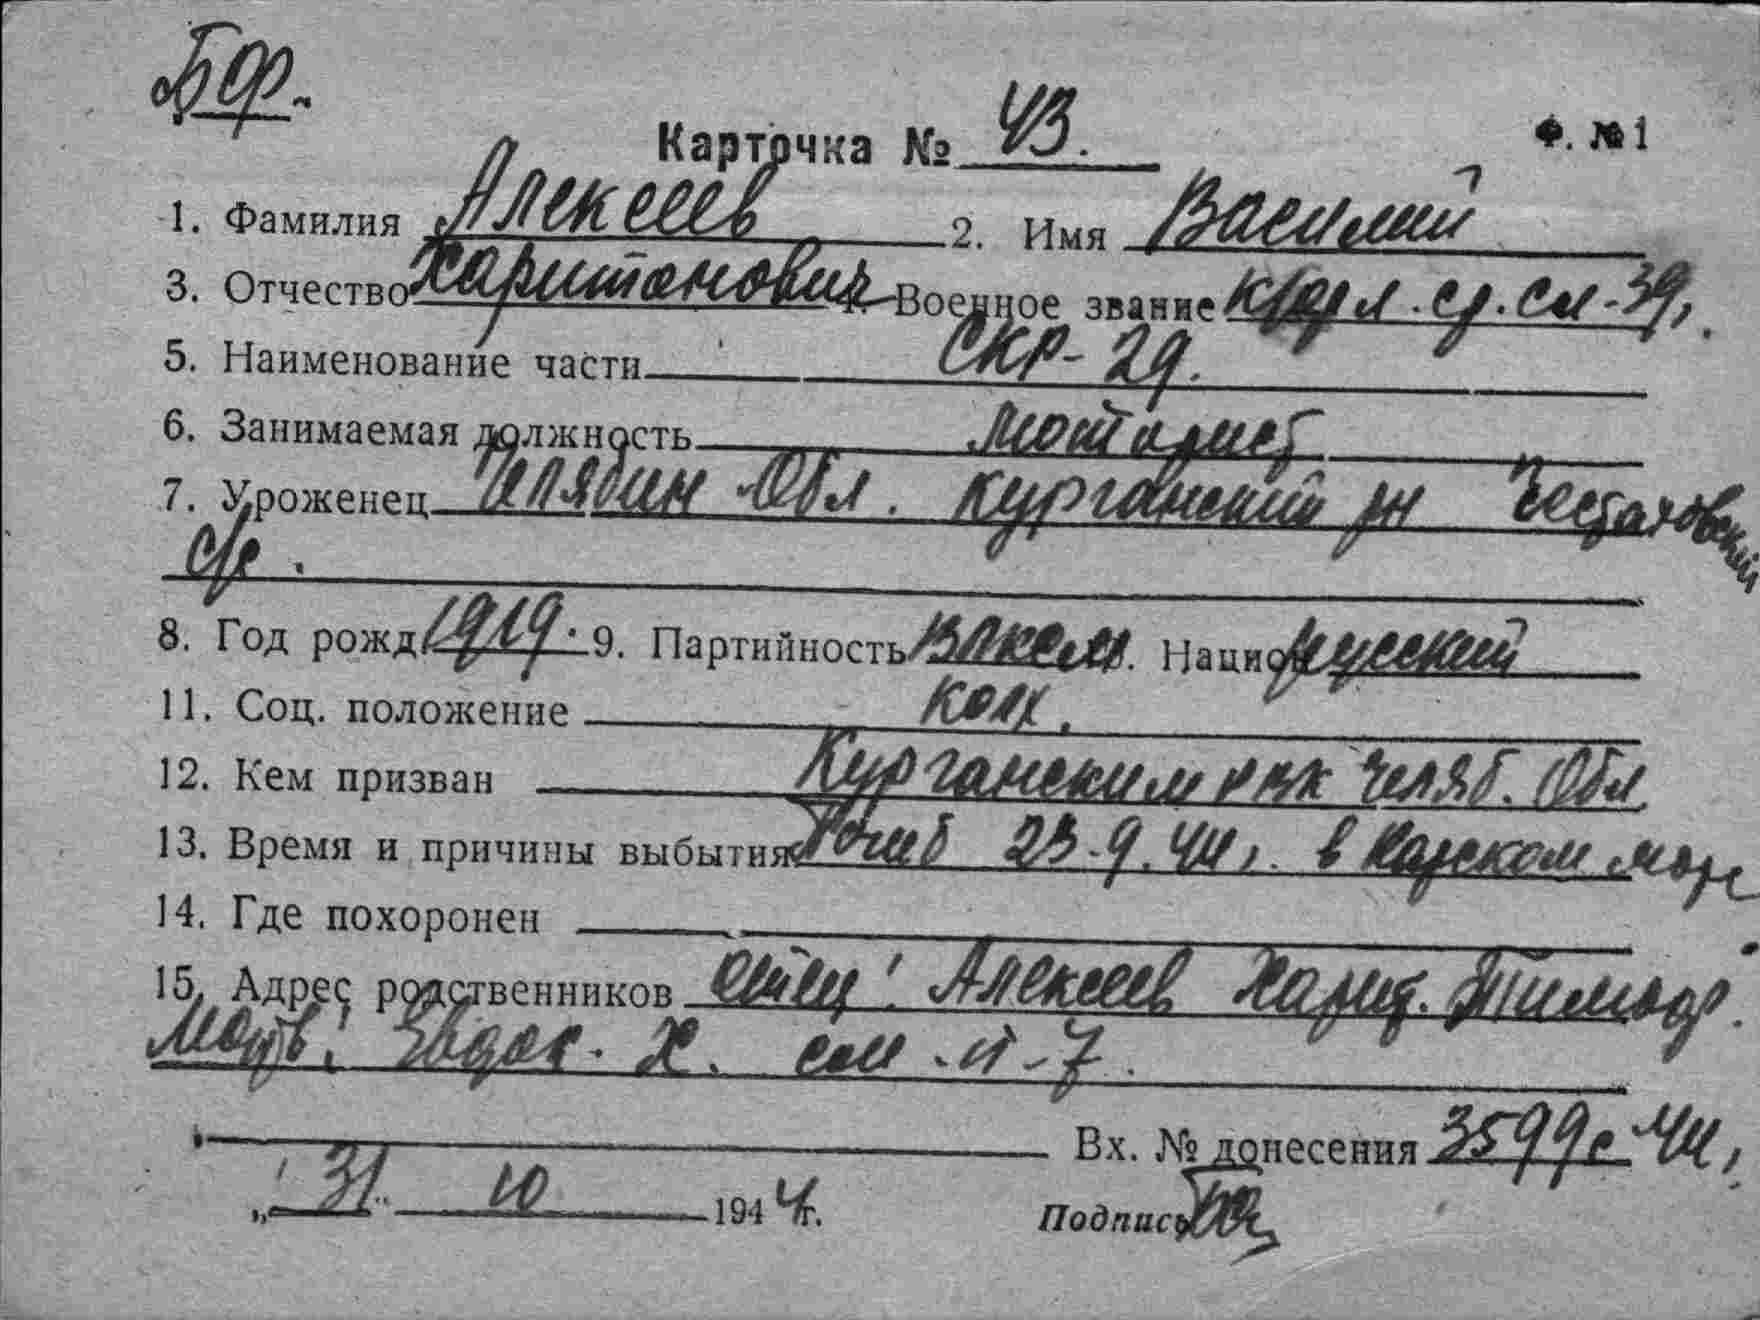 БФ.
Карточка № 43. Ф. № 1
1. Фамилия Алексеев 2. Имя Василий
3. Отчество Харитонович 4. Военное звание ср. сл-39,
5. Наименование части СКР-29.
6. Занимаемая должность моторист
7. Уроженец Челябин Обл. Курганский рн
с/с.
8. Год рожд. 1919. 9. Партийность ВЛКСМ. Национ русский
11. Соц. положение колх.
12. Кем призван Курганским РВК Челяб. Обл
13. Время и причины выбытия Погиб 23-9.44г. в Карском море
14. Где похоронен
15. Адрес родственников отец: Алексеев Харит. Тимофр.
Евдок. Х. см. п-7.
Вх. № донесения 3599с-44г,
„31" 10 1944г. Подпись